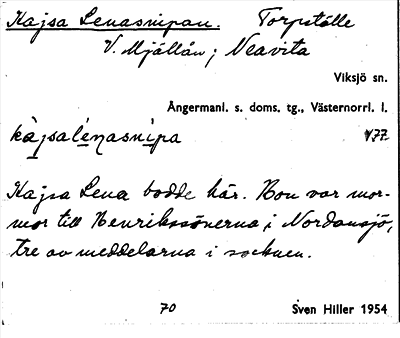 Kajsa Lenasnipan. Torpställe
V. Mjällån; Neavita
Viksjö sn.
Ångermanl. s. doms. tg., Västernorrl. l.
kàjsalénasnipa
Kajsa Lena bodde här. Hon var mor-
mor till Henrikssönerna i Nordansjö,
tre av meddelarna i socknen.
70 Sven Hiller 1954